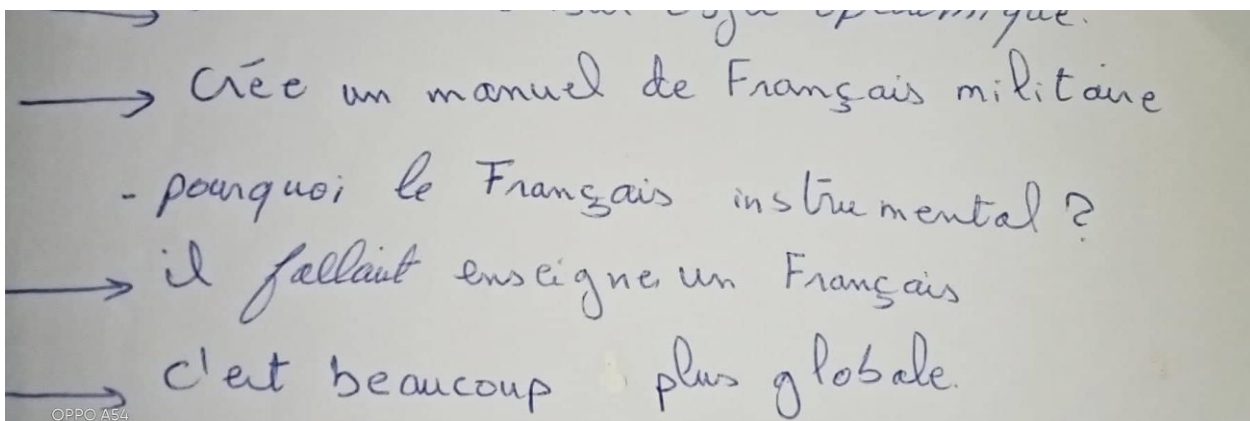 → Crée un manuel de Français militaire
- pourquoi le Français instrumental ?
→ il fallait enseigne un Français
→ c'est beaucoup plus globale.
OPPO A54